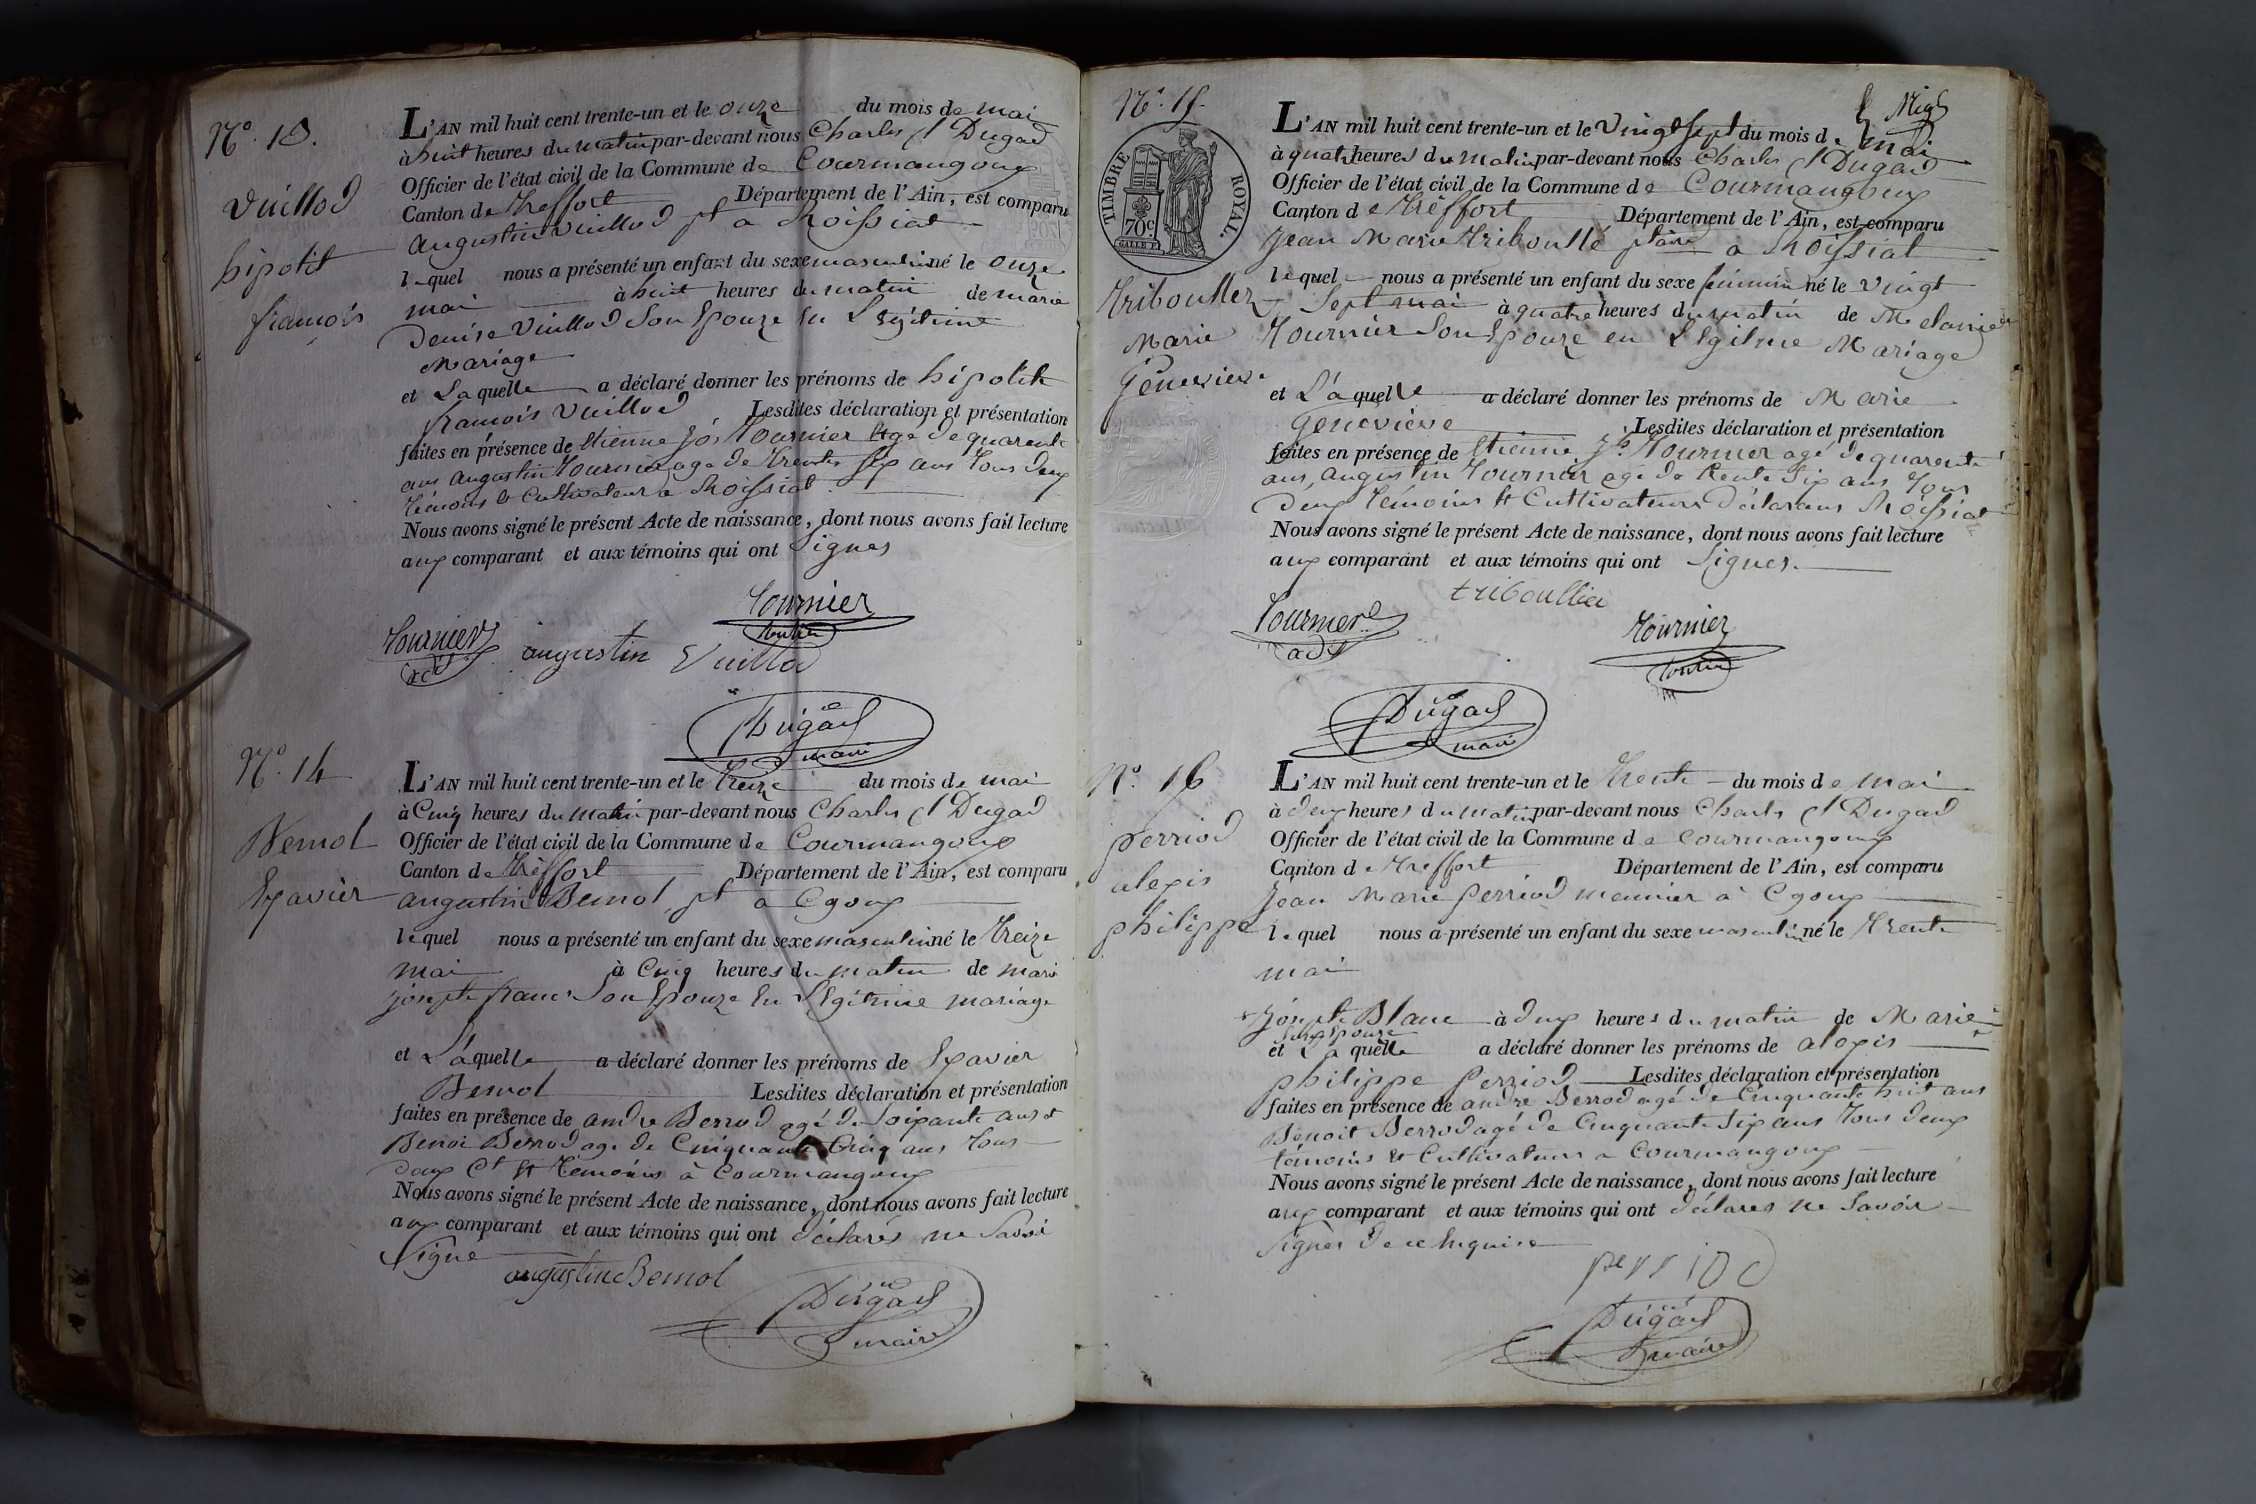 N.o 13.
Vuillod
hipolit
françois
L'AN mil huit cent trente-un et le onze du mois de mai
à huit heures du matin par-devant nous Charles Dugad
Officier de l'état civil de la Commune de Courmangoux
Canton de Treffort Département de l'Ain, est comparu
augustin Vuillod pt a Roissiat
lequel nous a présenté un enfant du sexe masculin né le onze
mai à huit heures du matin de marie
Denise Vuillod Son Epouze En Legitime
Mariage
et Laquelle a déclaré donner les prénoms de hipolite
francois Vuillod Lesdites déclaration et présentation
faites en présence de Etienne Jos Tournier agé de quarente
ans augustin Tournier age de trente six ans tous deux
témoins et Cultivateur a Roissiat
Nous avons signé le présent Acte de naissance, dont nous avons fait lecture
aux comparant et aux témoins qui ont Signes
Tournier
Tournier
adj
augustin Vuillod
Dugad
maire
N.o 14
Bernol
Expavier
L'AN mil huit cent trente-un et le treize du mois de mai
à Cinq heures du matin par-devant nous Charles Dugad
Officier de l'état civil de la Commune de Courmangoux
Canton de Treffort Département de l'Ain, est comparu
augustin Bernol pt a Cgoux
lequel nous a présenté un enfant du sexe masculin né le treize
mai à Cinq heures du matin de marie
josephte franc Son Epouze En Legitime mariage
et Laquelle a déclaré donner les prénoms de Expavier
Bernol Lesdites déclaration et présentation
faites en présence de andre Berrod agé de Soixante ans et
Benoi Berrod age de Cinquante Cinq ans tous
deux Ct et témoins à Courmangoux
Nous avons signé le présent Acte de naissance, dont nous avons fait lecture
aux comparant et aux témoins qui ont déclarés ne Savoi
Signe
augustin Bernol
Dugad
maire
N.o 15.
TIMBRE ROYAL.
70c.
Triboullez
Marie
Genevieve
L'AN mil huit cent trente-un et le Vingt Sept du mois de mai
à quatre heures du matin par-devant nous Charles Dugad
Officier de l'état civil de la Commune de Courmangoux
Canton de Treffort Département de l'Ain, est comparu
Jean Marie Triboullé a Roissiat
lequel nous a présenté un enfant du sexe féminin né le Vingt
Sept mai à quatre heures du matin de Melanie
Tournier Son Epouze en Legitime Mariage
et Laquelle a déclaré donner les prénoms de Marie
Genevieve Lesdites déclaration et présentation
faites en présence de Etienne Jh Tournier agé de quarente
ans, augustin Tournier agé de trente Six ans tous
deux témoins et Cultivateurs Roissiat
Nous avons signé le présent Acte de naissance, dont nous avons fait lecture
aux comparant et aux témoins qui ont Signer.
triboullier
Tournier
adj
Tournier
Dugad
maire
N.o 16
perriod
alexis
philippe
L'AN mil huit cent trente-un et le Trente du mois de mai
à deux heures du matin par-devant nous Charles Dugad
Officier de l'état civil de la Commune de Courmangoux
Canton de Treffort Département de l'Ain, est comparu
Jean Marie perriod meunier à Cgoux
lequel nous a présenté un enfant du sexe masculin né le Trente
mai
josephte Blanc à deux heures du matin de Marie
Son Epouze
et La quelle a déclaré donner les prénoms de alexis
philippe perriod Lesdites déclaration et présentation
faites en présence de andre Berrod agé de Cinquante huit ans
Benoit Berrod agé de Cinquante Six ans tous deux
témoins et Cultivateurs a Courmangoux
Nous avons signé le présent Acte de naissance, dont nous avons fait lecture
aux comparant et aux témoins qui ont déclares ne Savoir
Signer de ce Enquise
perriod
Dugad
maire